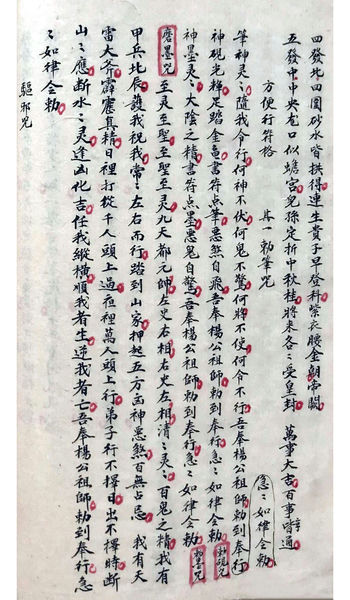 四發北四圍砂水皆拱得連生貴子早登科紫衣騰金朝帝闕
五發中中央右口似蟾宮兒孫定折中秋桂將來各〻受皇封
萬事大吉百事皆通
急〻如律令勅
方便行符格
其一勅筆咒
筆神灵〻隨我令行何神不伏何鬼不驚何將不使何令不行吾奉楊公祖師勅到奉行
神硯光輝足踏金龟書符点筆惡煞自飛吾奉楊公祖師勅到奉行急〻如律令勅
勅硯咒
神墨灵〻太陰之精書符点墨惡鬼自驚吾奉楊公祖師勅到奉行急〻如律令勅
勅墨咒
磨墨咒
至灵至聖至聖至灵九天都元帥左史右相右史左相清〻灵〻百鬼之精我有
甲兵北辰護我祝我常〻左右而行踏到山家押起五方凶神惡煞百無占忌
我有天
雷大斧霹靂真精日裡打從千人頭上過夜裡萬人頭上行弟子行不擇日出不擇時断
山〻應断水〻灵逢凶化吉任我縱橫順我者生逆我者亡吾奉楊公祖師勅到奉行急
〻如律令勅
驅邪咒